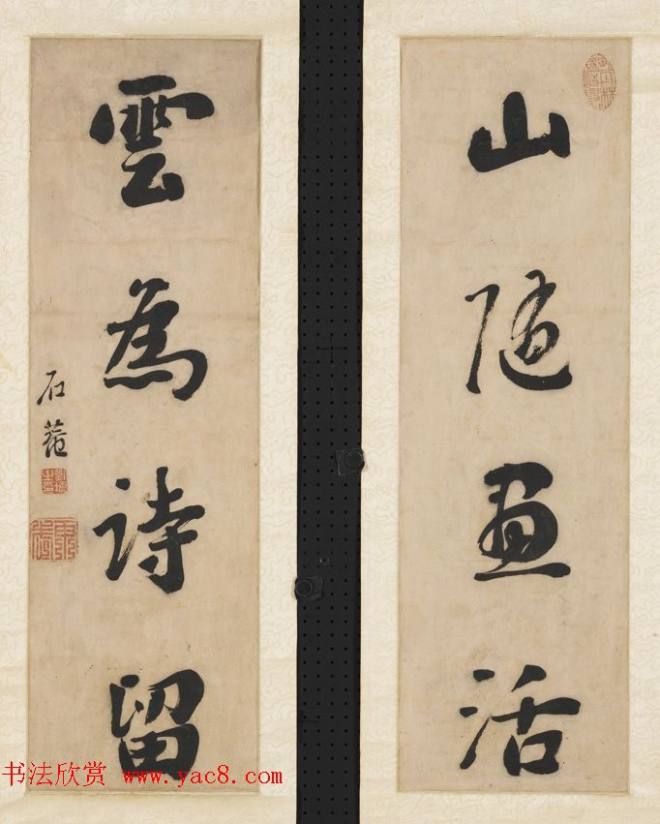 山随畫活
雲為詩留
石菴
书法欣赏 www.yac8.com